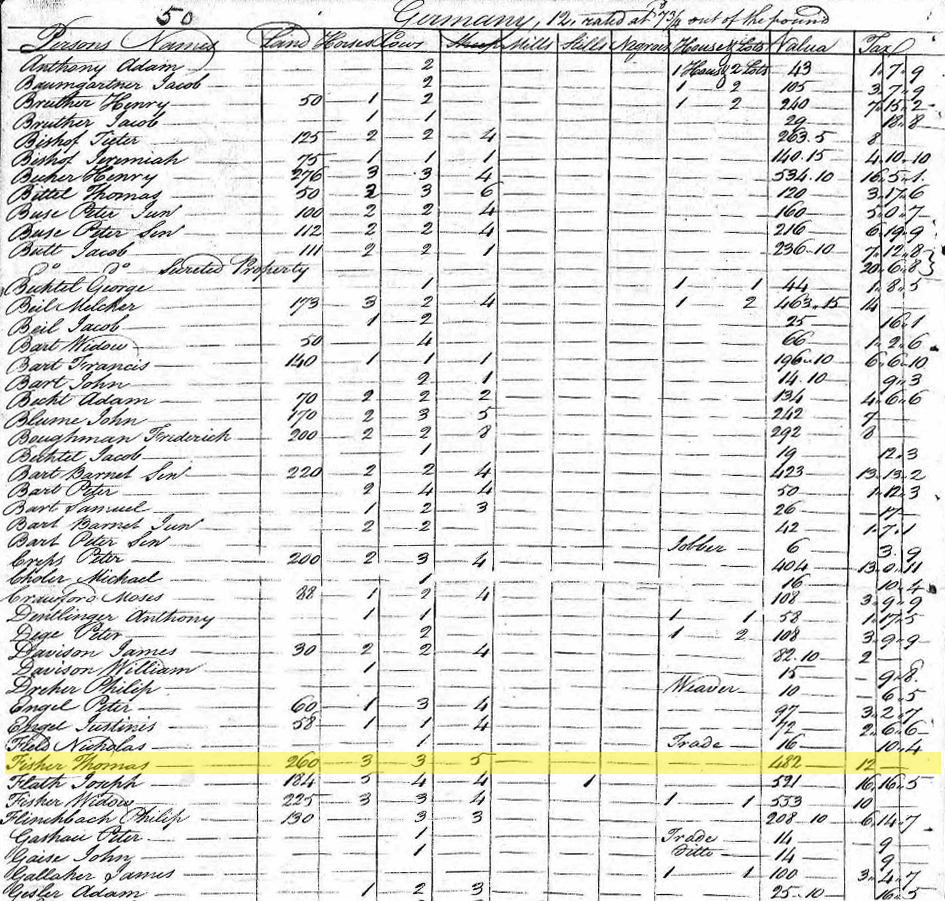 50 Germany, 12, rated at 7¾ out of the pound
Persons Names Land Horses Cows Sheep Mills Stills Negroes House & Lots Value Tax
Anthony Adam 2 1 House 2 Lots 43 1..7..9
Baumgartner Jacob 2 1 2 105 3..7..9
Bruther Henry 50 1 2 1 2 240 7..15..2
Bruther Jacob 1 1 29 18..8
Bishof Pieter 125 2 2 4 263.5 8
Bishof Jeremiah 75 1 1 1 140.15 4..10..10
Bucher Henry 276 3 3 4 534.10 16..5..1
Bittel Thomas 50 2 3 6 120 3..17..6
Buse Peter Jun 100 2 2 4 160 5..0..7
Buse Peter Sen 112 2 2 4 216 6..19..9
Butt Jacob 111 2 2 1 236.10 7..12..8
Do Do Secreted Property 20..6..8
Bechtel George 1 1 1 44 1..8..5
Beil Melcher 173 3 2 4 1 2 463.15 14
Beil Jacob 1 2 25 16..1
Bart Widow 50 4 66 1..2..6
Bart Francis 140 1 1 1 196.10 6..6..10
Bart John 2 1 14.10 9..3
Bucht Adam 70 2 2 2 134 4..6..6
Blume John 170 2 3 5 242 7
Boughman Frederich 200 2 2 8 292 8
Bechtel Jacob 1 19 12..3
Bart Barnet Sen 220 2 2 4 423 13..13..2
Bart Peter 2 4 4 50 1..12..3
Bart Samuel 1 2 3 26 17
Bart Barnet Jun 2 2 42 1..7..1
Bart Peter Sen Jobber 6 3..9
Creps Peter 200 2 3 4 404 13..0..11
Choler Michael 1 16 10..4
Crawford Moses 88 1 2 4 108 3..9..9
Dentlinger Anthony 1 1 1 1 58 1..17..5
Dege Peter 2 1 2 108 3..9..9
Davison James 30 2 2 4 82.10 2
Davison William 1 15 9..8
Dreher Philip Weaver 10 6..5
Engel Peter 60 1 3 4 97 3..2..7
Engel Justinis 58 1 1 4 72 2..6..6
Field Nicholas 1 Trade 16 10..4
Fisher Thomas 260 3 3 5 482 12
Flath Joseph 184 5 4 4 1 521 16..16..5
Fisher Widow 225 3 3 4 1 1 533 10
Flinchbach Philip 130 3 3 208.10 6..14..7
Gashau Peter 1 Trade 14 9
Gaise John 1 Ditto 14 9
Gallaher James 1 1 100 3..4..7
Gesler Adam 1 2 3 25.10 16..5